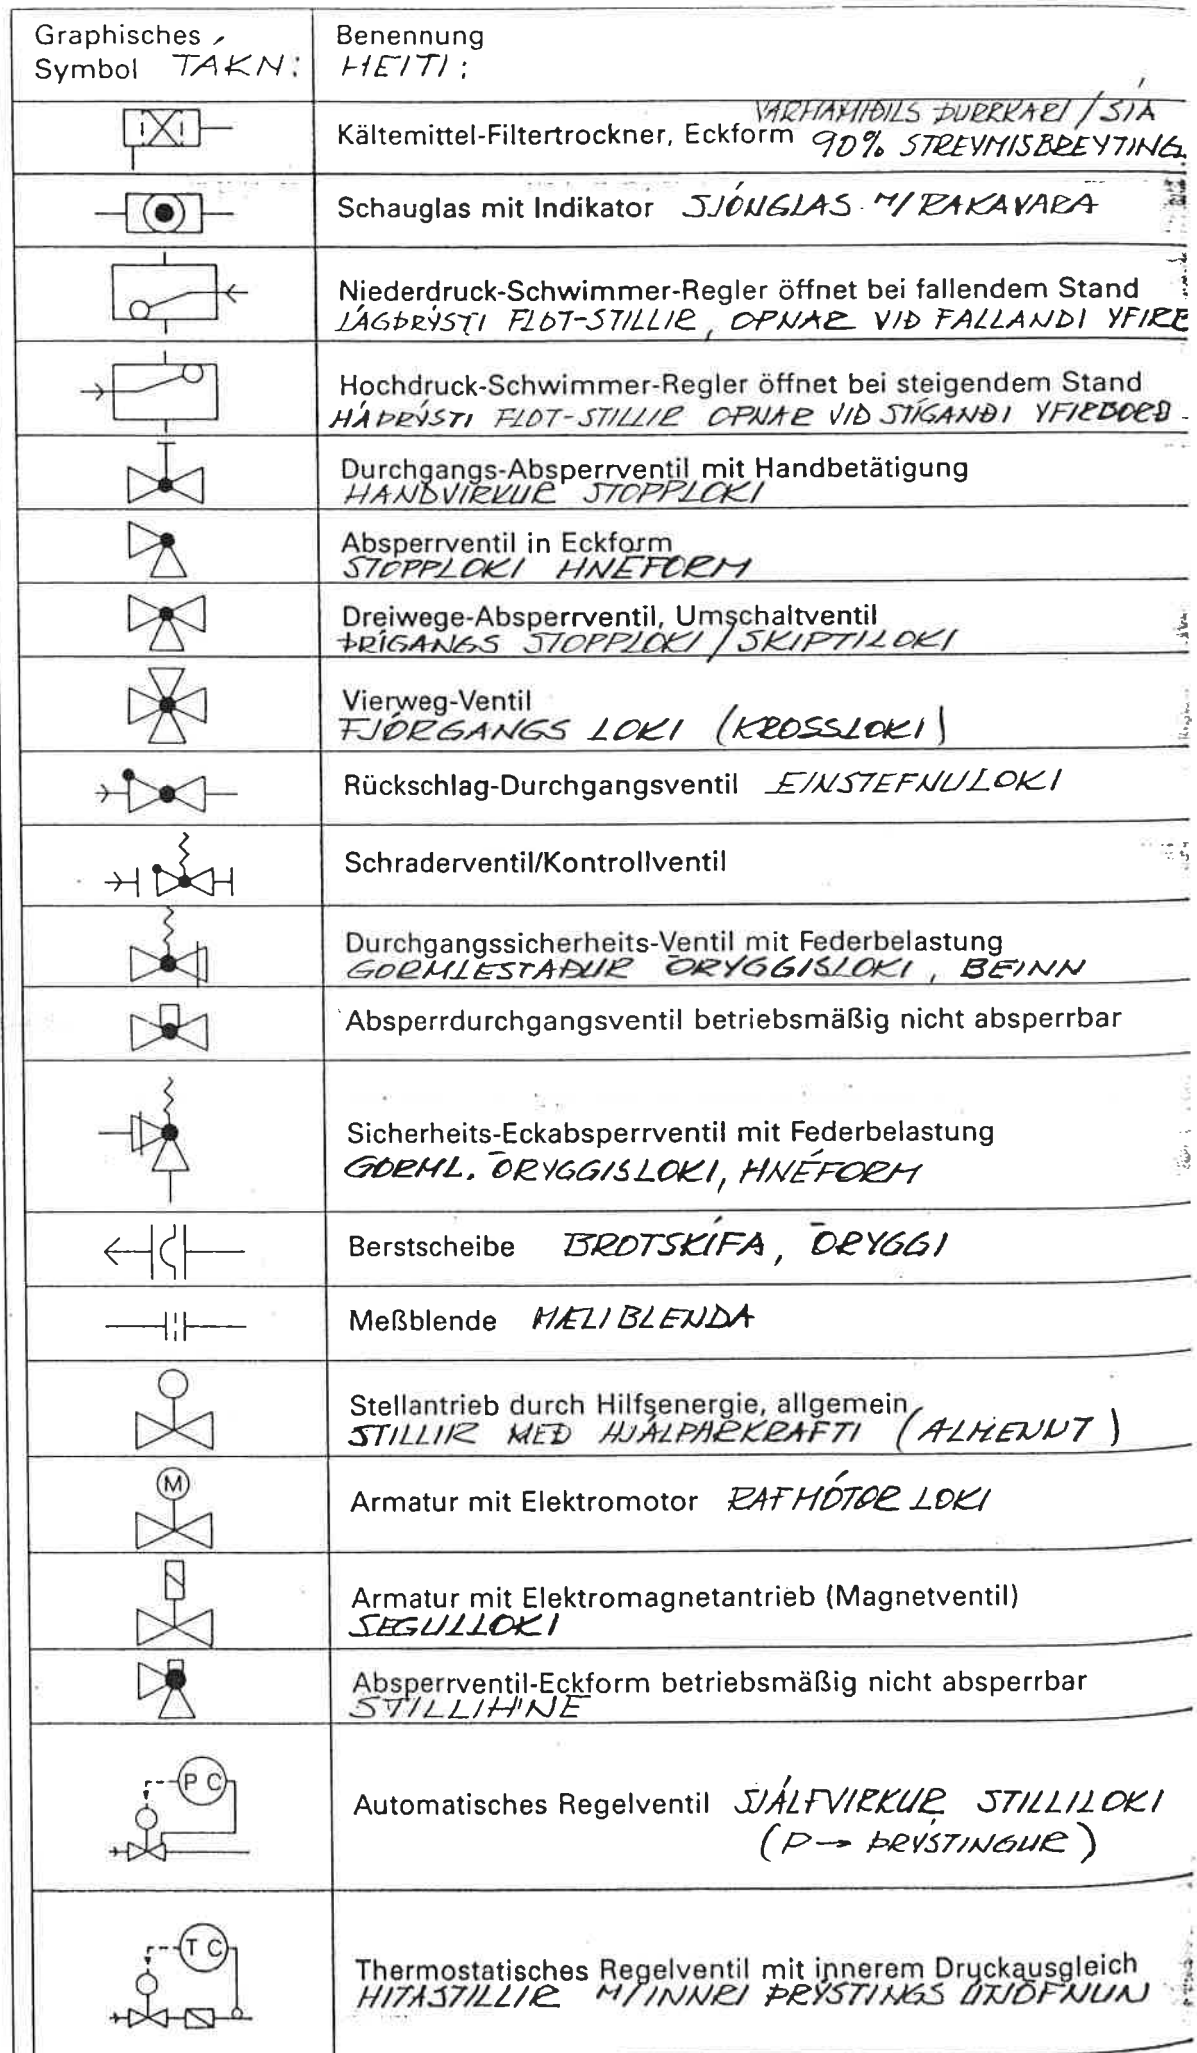 Graphisches
Symbol TÁKN:
Benennung
HEITI:
VARMAMIÐILS ÞURRKARI / SÍA
Kältemittel-Filtertrockner, Eckform 90% STREYMISBREYTING
Schauglas mit Indikator SJÓNGLAS M/ RAKAVARA
Niederdruck-Schwimmer-Regler öffnet bei fallendem Stand
LÁGÞRÝSTI FLOT-STILLIR, OPNAR VIÐ FALLANDI YFIRB
Hochdruck-Schwimmer-Regler öffnet bei steigendem Stand
HÁÞRÝSTI FLOT-STILLIR OPNAR VIÐ STÍGANDI YFIRBORÐ
Durchgangs-Absperrventil mit Handbetätigung
HANDVIRKUR STOPPLOKI
Absperrventil in Eckform
STOPPLOKI HNÉFORM
Dreiwege-Absperrventil, Umschaltventil
ÞRÍGANGS STOPPLOKI / SKIPTILOKI
Vierweg-Ventil
FJÓRGANGS LOKI (KROSSLOKI)
Rückschlag-Durchgangsventil EINSTEFNULOKI
Schraderventil/Kontrollventil
Durchgangssicherheits-Ventil mit Federbelastung
GORMLESTAÐUR ÖRYGGISLOKI, BEINN
Absperrdurchgangsventil betriebsmäßig nicht absperrbar
Sicherheits-Eckabsperrventil mit Federbelastung
GORML. ÖRYGGISLOKI, HNÉFORM
Berstscheibe BROTSKÍFA, ÖRYGGI
Meßblende MÆLIBLENDA
Stellantrieb durch Hilfsenergie, allgemein
STILLIR MEÐ HJÁLPARKRAFTI (ALMENNT)
M
Armatur mit Elektromotor RAFMÓTOR LOKI
Armatur mit Elektromagnetantrieb (Magnetventil)
SEGULLOKI
Absperrventil-Eckform betriebsmäßig nicht absperrbar
STILLIHNÉ
P C
Automatisches Regelventil SJÁLFVIRKUR STILLILOKI
(P → ÞRÝSTINGUR)
T C
Thermostatisches Regelventil mit innerem Druckausgleich
HITASTILLIR M/INNRI ÞRÝSTINGS ÚTJÖFNUN